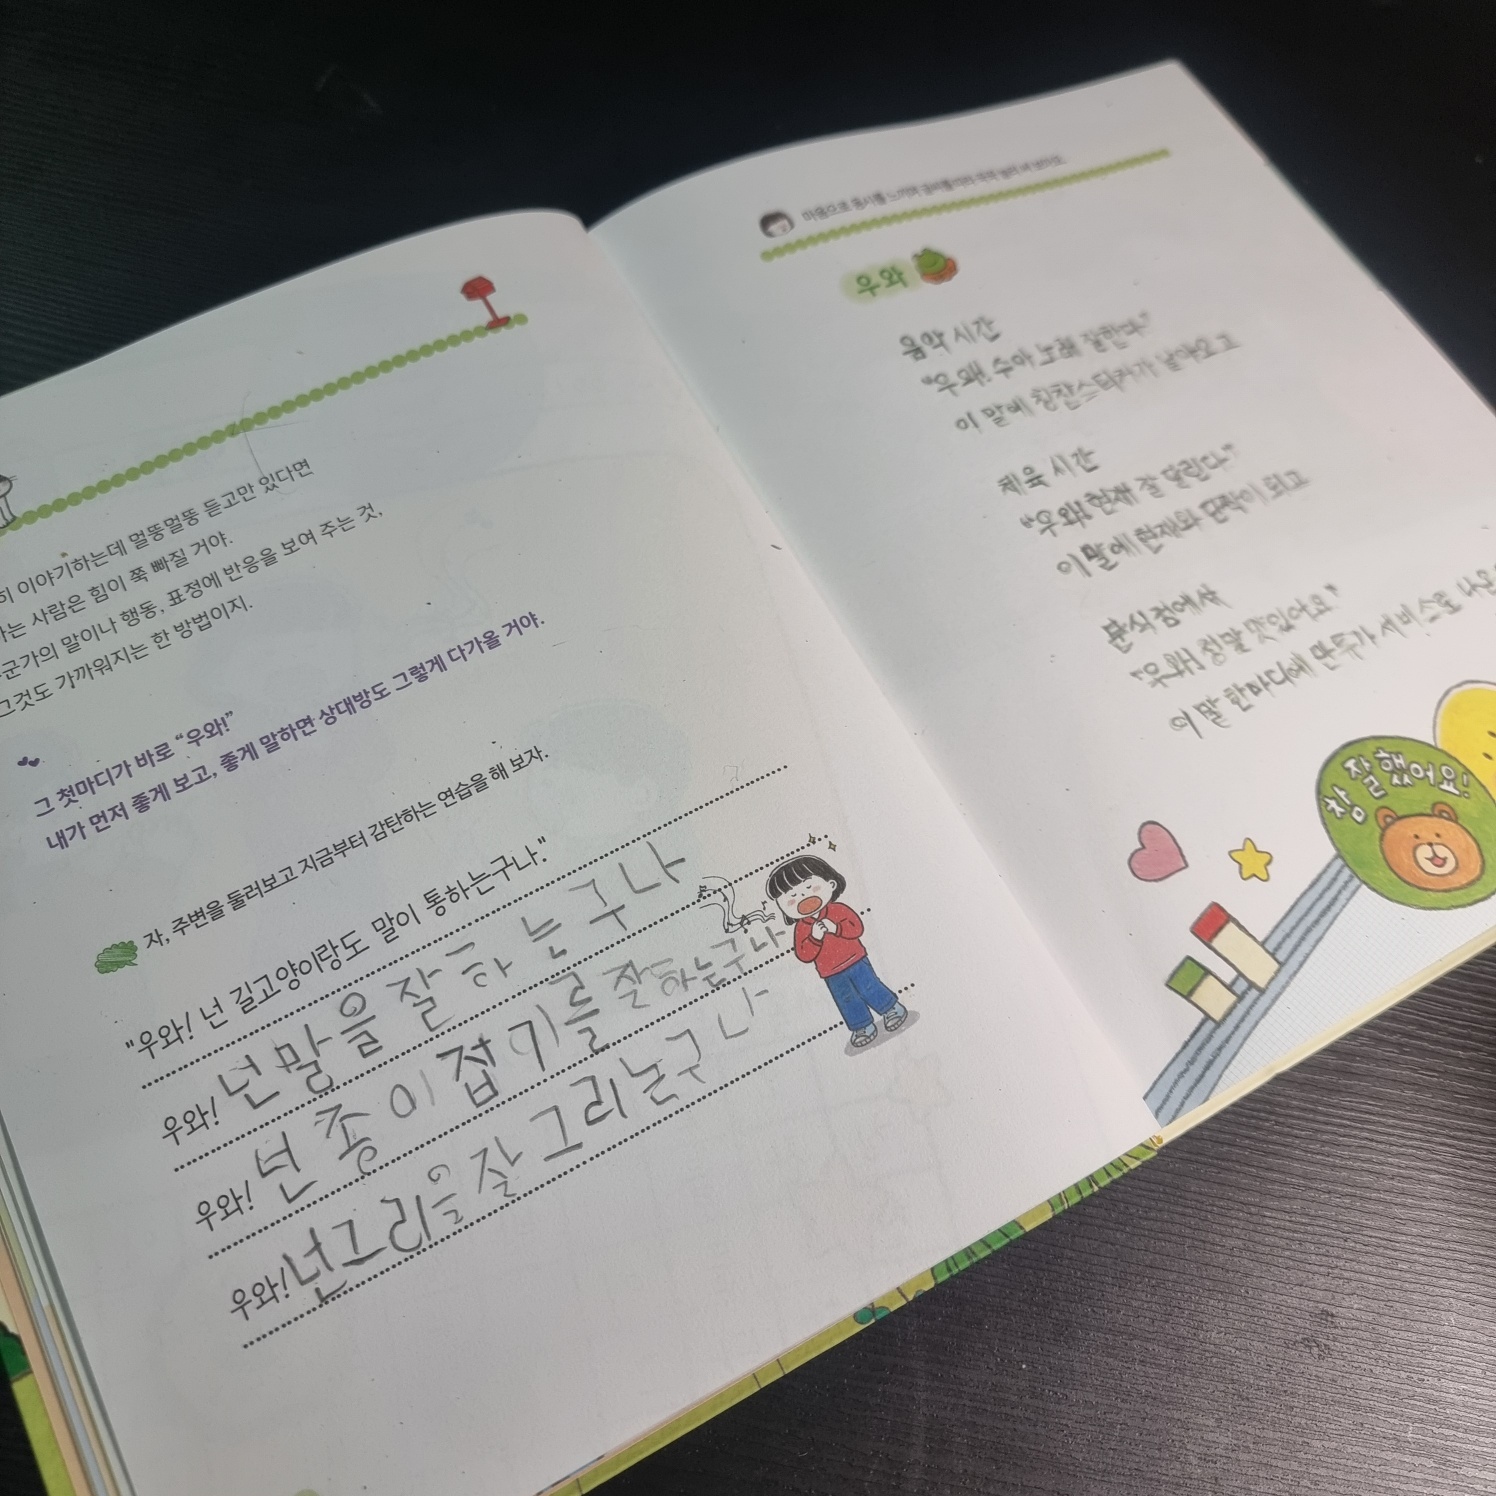 히 이야기하는데 멀뚱멀뚱 듣고만 있다면
하는 사람은 힘이 쭉 빠질 거야.
군가의 말이나 행동, 표정에 반응을 보여 주는 것,
그것도 가까워지는 한 방법이지.
그 첫마디가 바로 "우와!"
내가 먼저 좋게 보고, 좋게 말하면 상대방도 그렇게 다가올 거야.
자, 주변을 둘러보고 지금부터 감탄하는 연습을 해 보자.
"우와! 넌 길고양이랑도 말이 통하는구나."
우와! 넌 말을 잘하는구나
우와! 넌 종이 접기를 잘하는구나
우와! 넌그리을 잘 그리는구나
마음으로 동시를 느끼며 글씨를 따라
우와
음악 시간
"우와! 수아 노래 잘한다."
이 말에 칭찬스티커가 날아오고
체육 시간
"우와! 현재 잘 달린다."
이 말에 현재와 단짝이 되고
분식점에서
"우와! 정말 맛있어요."
이 말 한마디에 만두가 서비스로 나온
참 잘했어요!